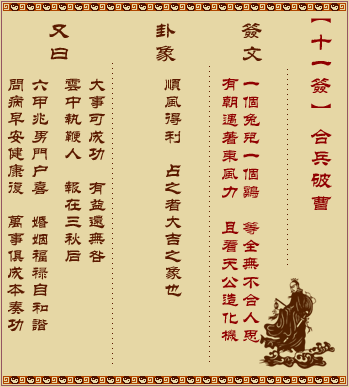 【十一簽】 合兵破曹
簽文
一個兔兒一個鷄 等全無不合人思
有朝遇著東風力 且看天公造化機
卦象
順風得利 占之者大吉之象也
又曰
大事可成功 有益還無咎
雲中執鞭人 報在三秋后
六甲兆男門户喜 婚烟福禄自和諧
問病早安健康復 萬事俱成本奏功